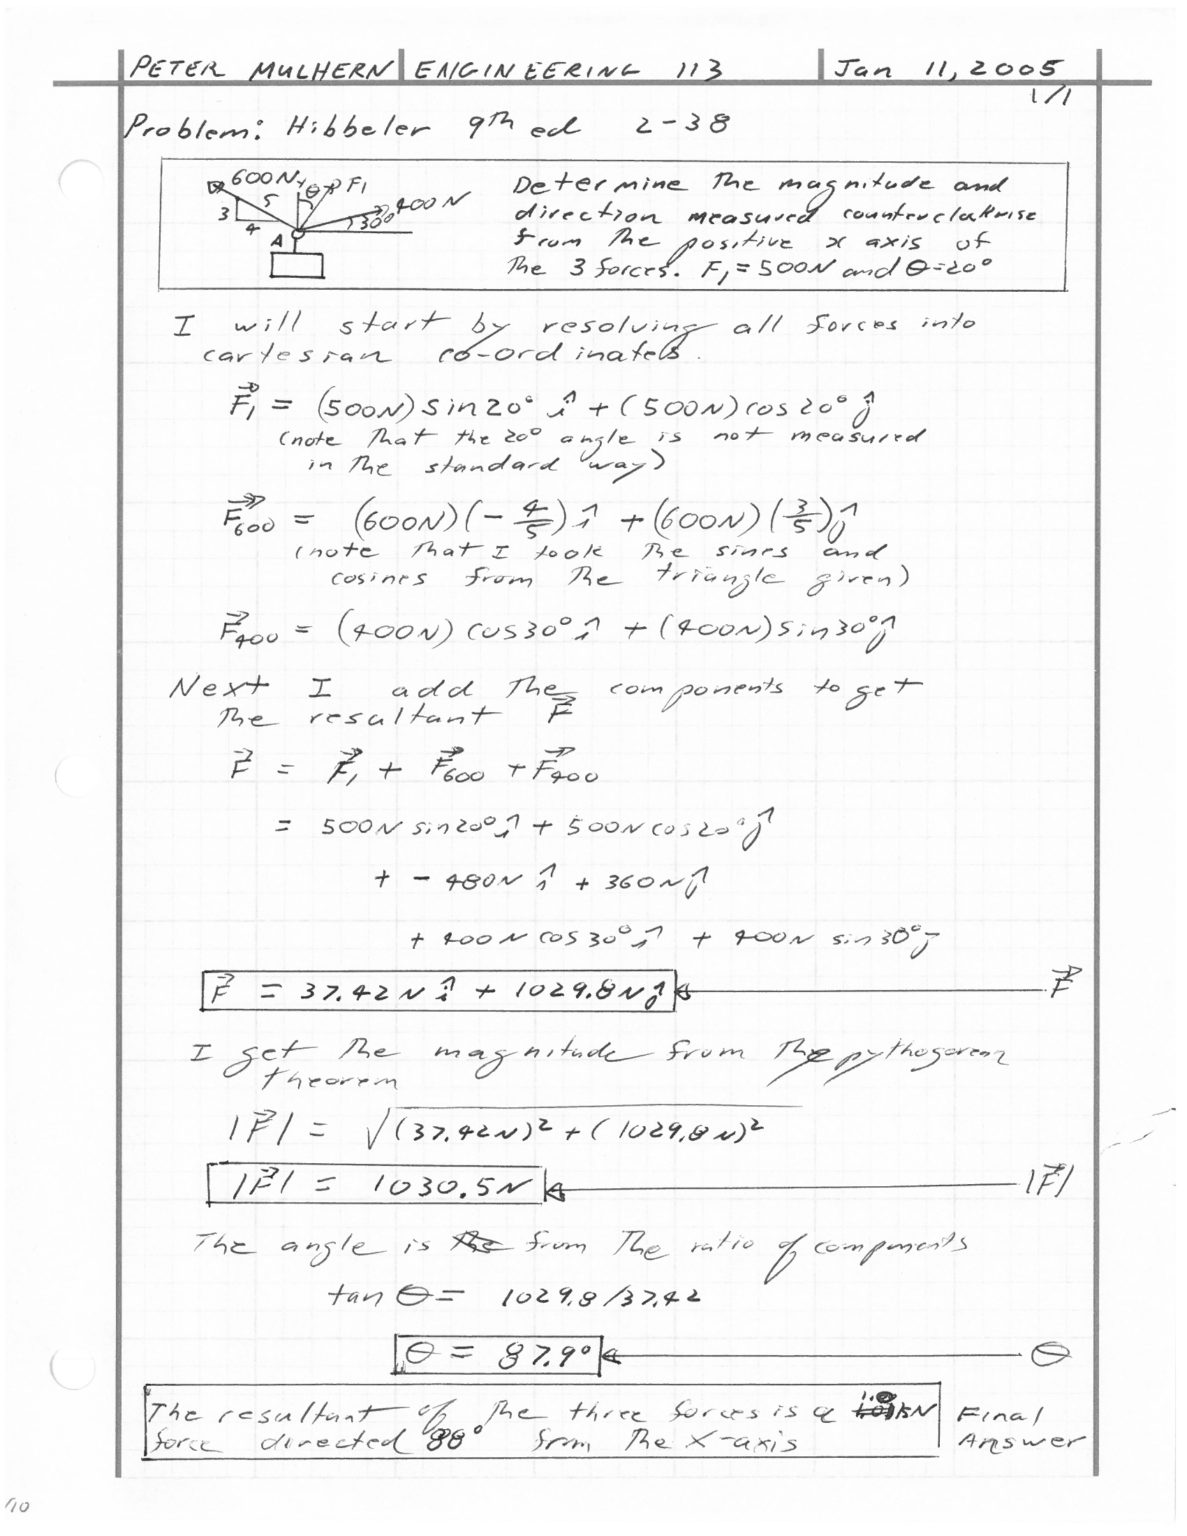 PETER MULHERN ENGINEERING 113 Jan 11, 2005
1/1
Problem: Hibbeler 9th ed 2-38
600N y θ F1
5 400N
3 30°
4
A
Determine the magnitude and
direction measured counterclockwise
from the positive x axis of
the 3 forces. F1 = 500N and θ=20°
I will start by resolving all forces into
cartesian co-ordinates.
F⃗1 = (500N) sin20° î + (500N) cos20° ĵ
(note that the 20° angle is not measured
in the standard way)
F⃗600 = (600N)(-4/5) î + (600N)(3/5) ĵ
(note that I took the sines and
cosines from the triangle given)
F⃗400 = (400N) cos30° î + (400N) sin30° ĵ
Next I add the components to get
the resultant F⃗
F⃗ = F⃗1 + F⃗600 + F⃗400
= 500N sin20° î + 500N cos20° ĵ
+ - 480N î + 360N ĵ
+ 400N cos30° î + 400N sin30° ĵ
F⃗ = 37.42N î + 1029.8N ĵ F⃗
I get the magnitude from the pythagorean
theorem
|F⃗| = √(37.42N)² + (1029.8N)²
|F⃗| = 1030.5N |F⃗|
The angle is from the ratio of components
tan θ = 1029.8/37.42
θ = 87.9° θ
The resultant of the three forces is a kN Final
force directed 88° from the x-axis Answer
/10